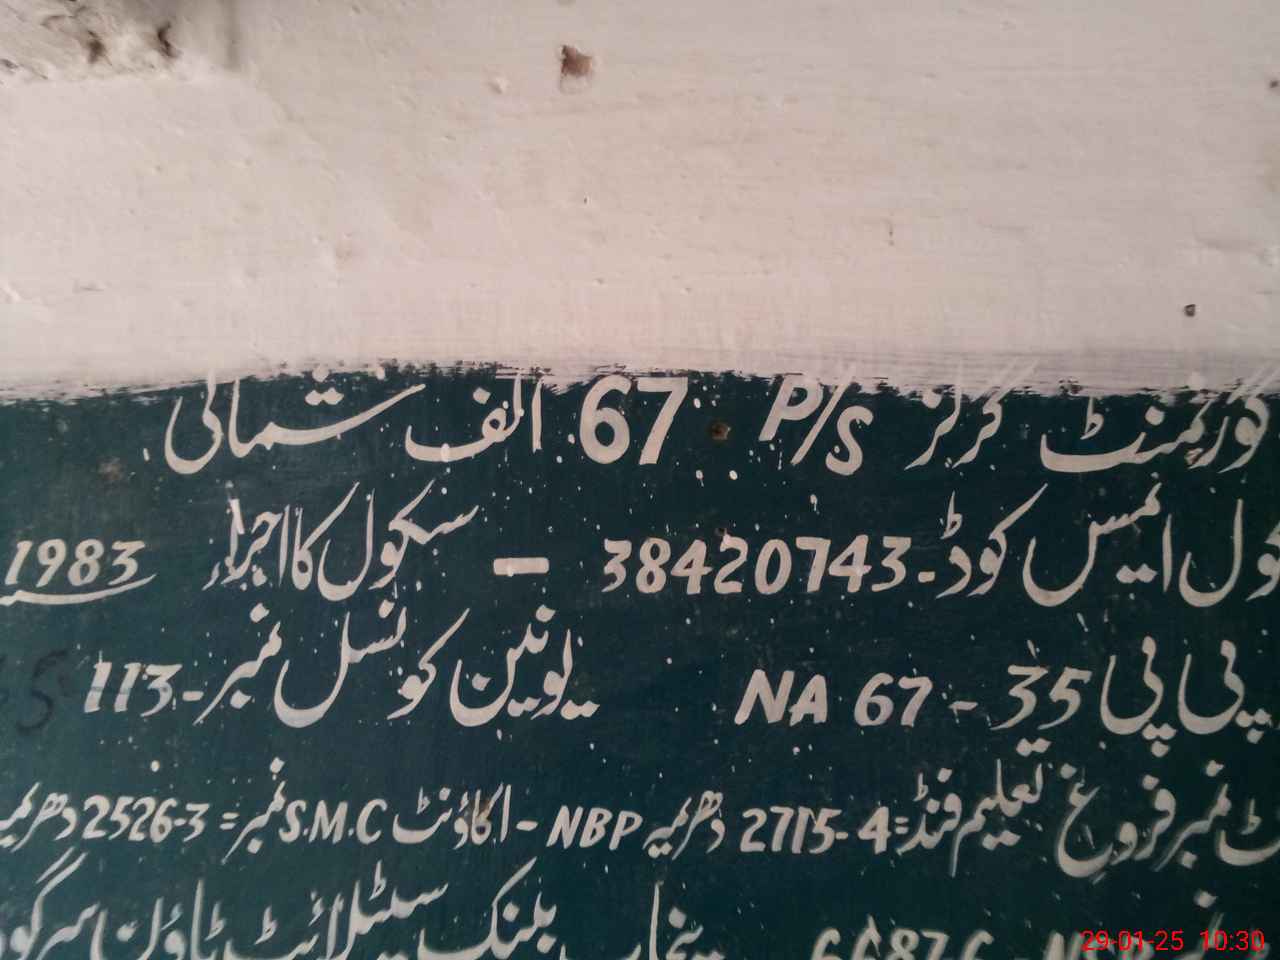 گورنمنٹ گرلز P/S 67 الف شمالی
ول ایمس کوڈ - 38420743 – سکول کا اجراء 1983
پی پی 35 - NA 67 یونین کونسل نمبر - 113
نمبر فروغ تعلیم فنڈ = 2715-4 دھریمہ NBP - اکاؤنٹ S.M.C نمبر = 2526-3
پنجاب بلنک سیٹلائیٹ ٹاؤن سرگود
29-01-25 10:30